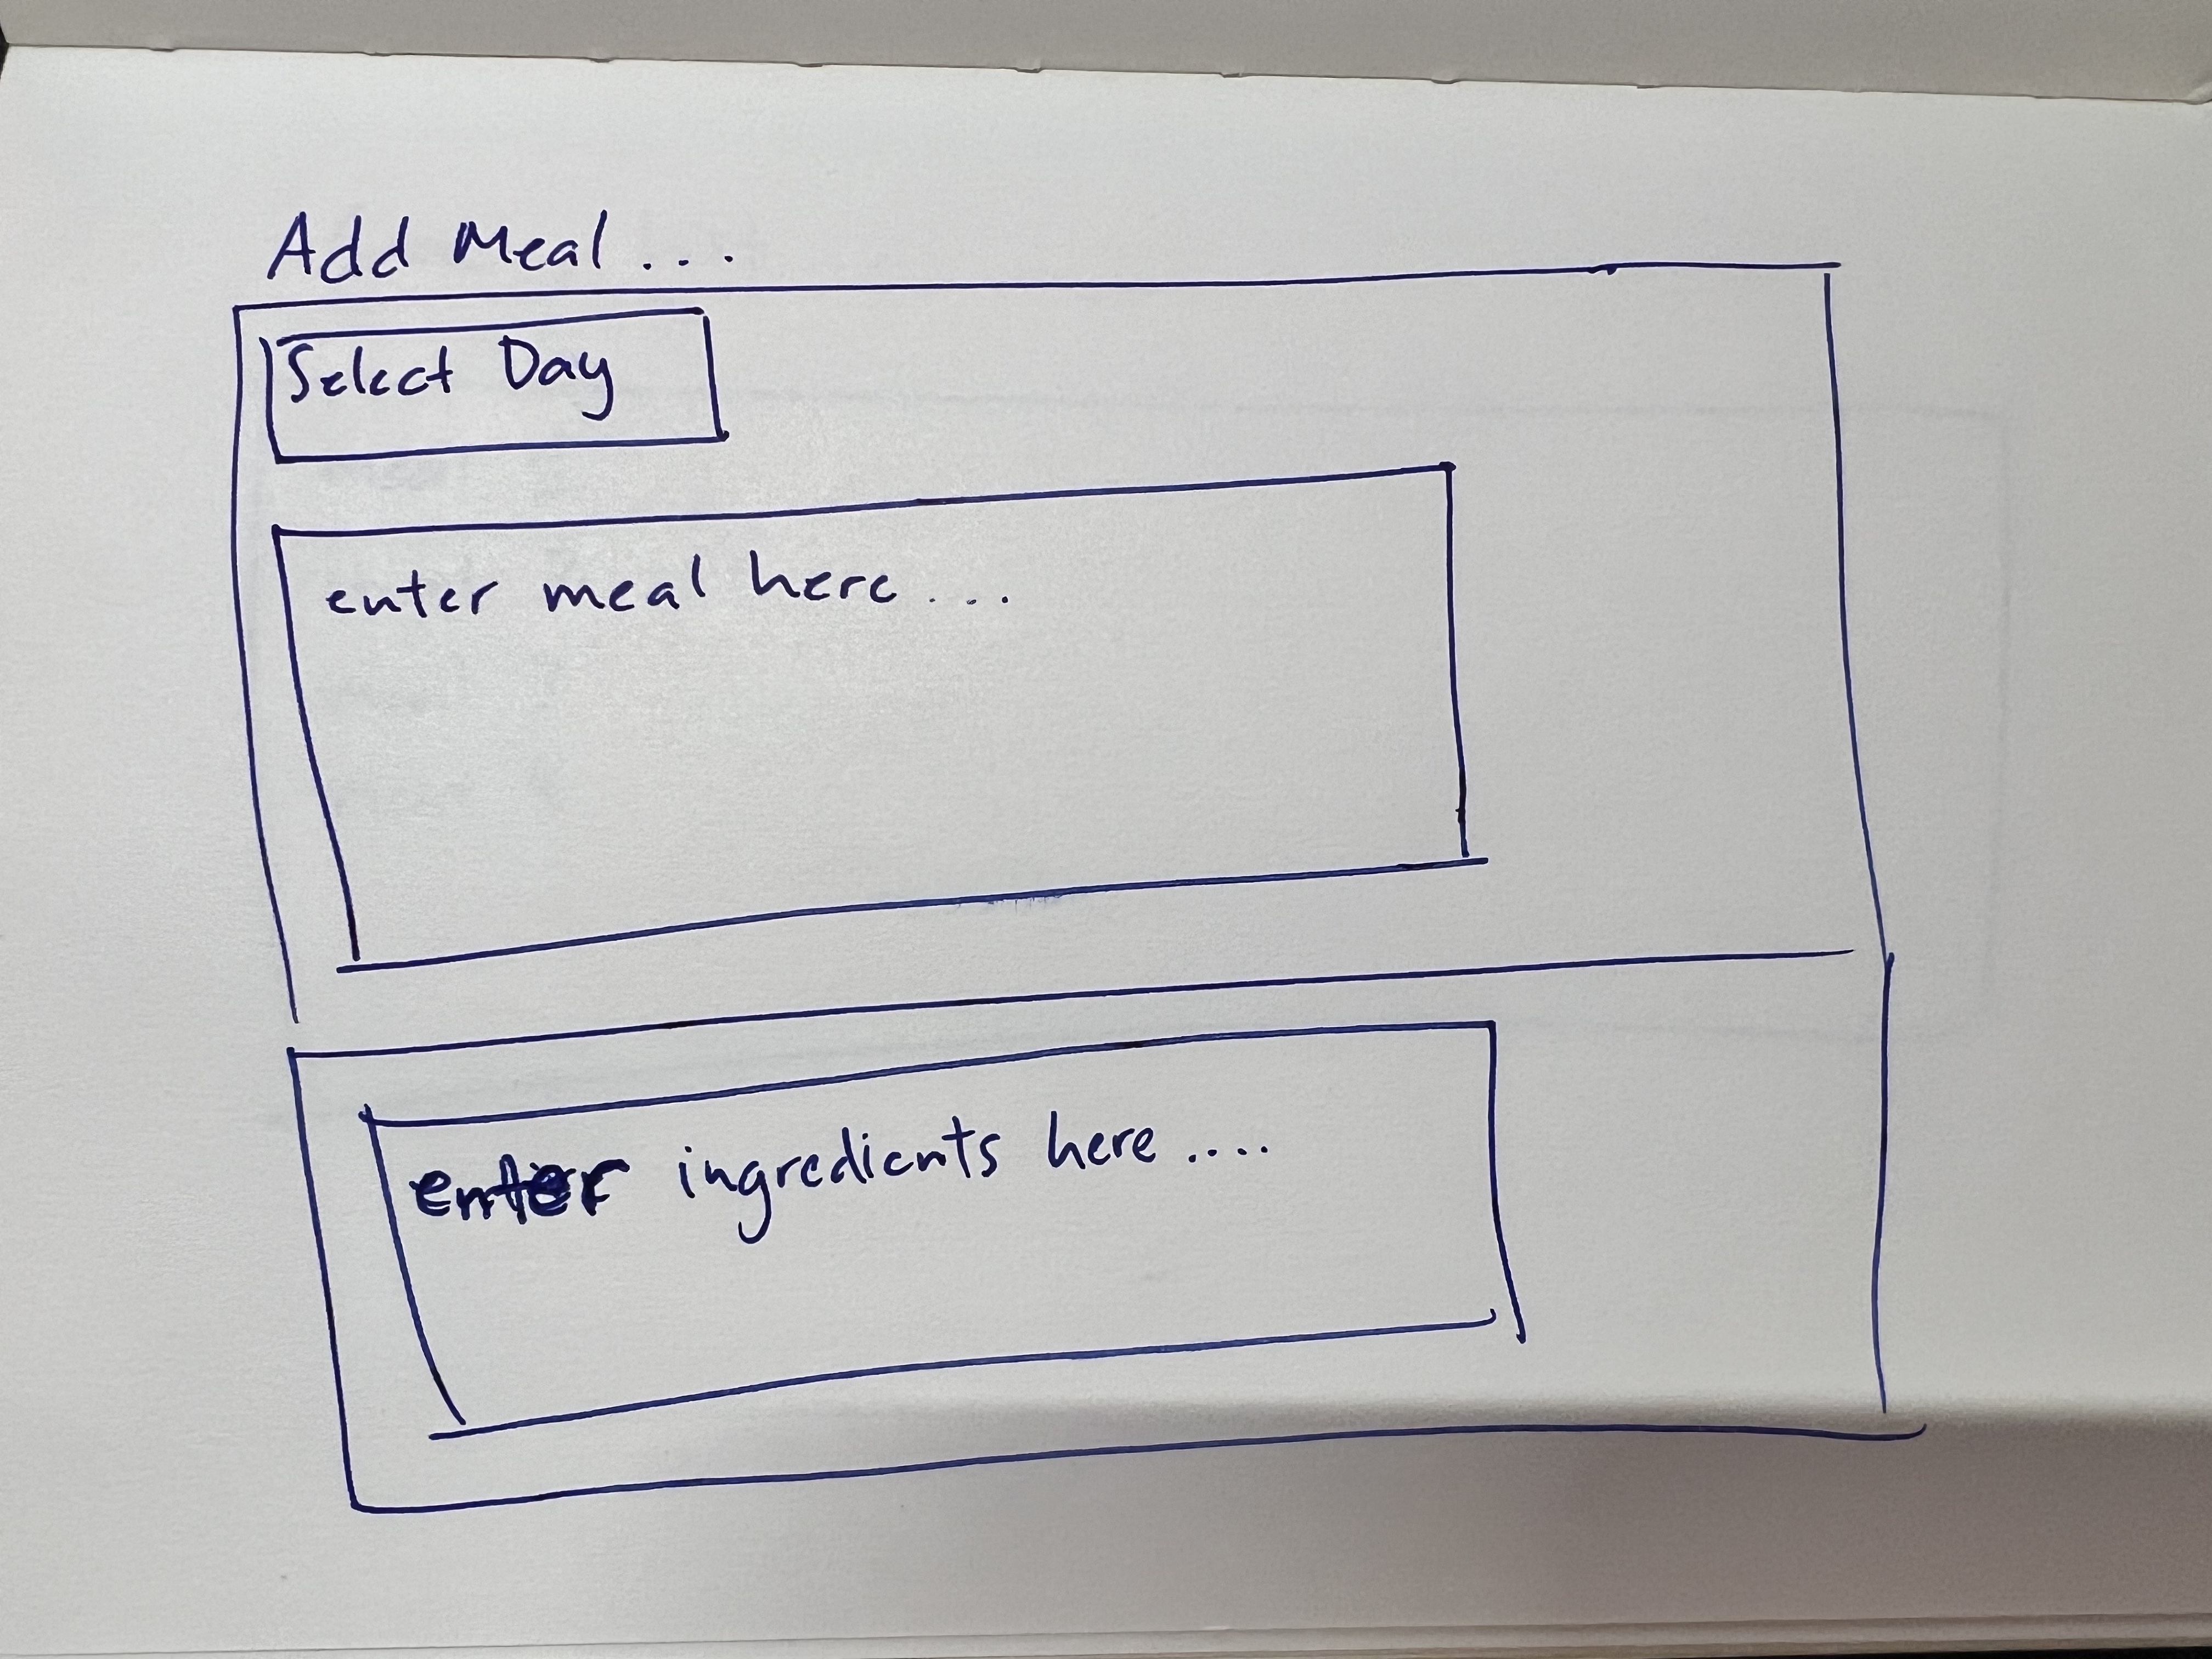 Add Meal...
Select Day
enter meal here...
enter ingredients here....